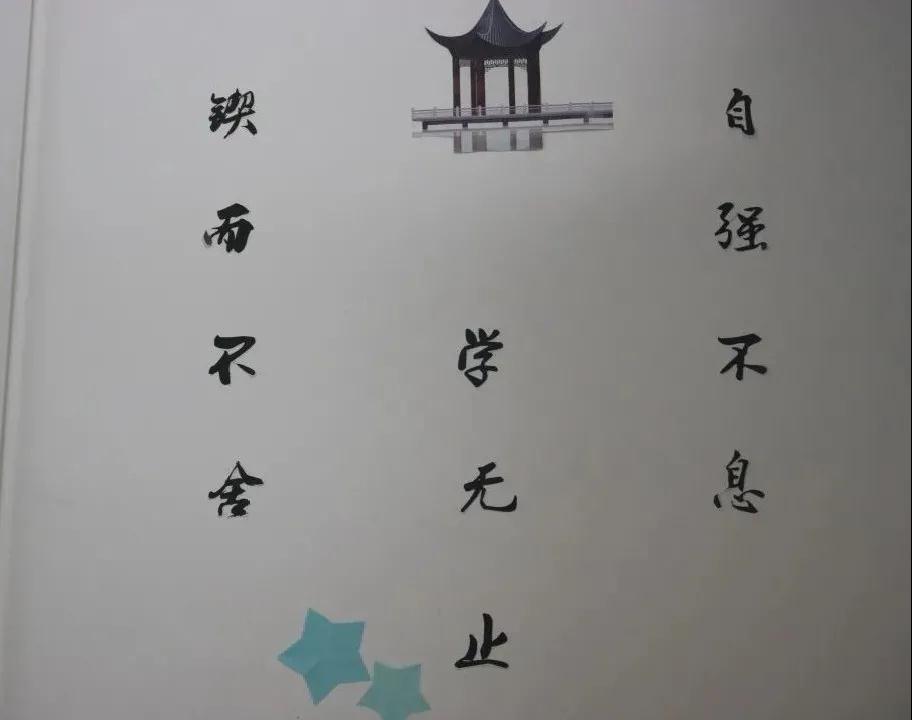 自强不息
学无止
锲而不舍